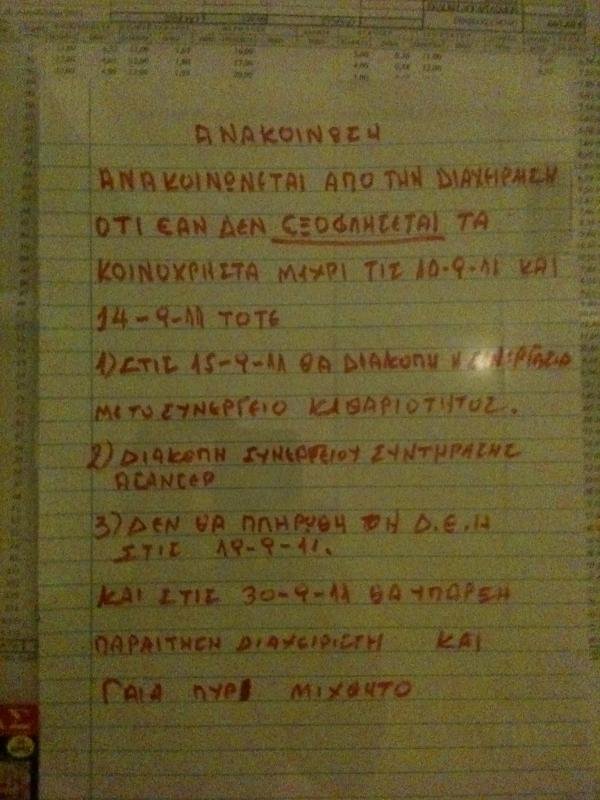 ΑΝΑΚΟΙΝΩΣΗ
ΑΝΑΚΟΙΝΩΝΕΤΑΙ ΑΠΟ ΤΗΝ ΔΙΑΧΕΙΡΗΣΗ
ΟΤΙ ΕΑΝ ΔΕΝ ΕΞΟΦΛΗΣΕΤΑΙ ΤΑ
ΚΟΙΝΟΧΡΗΣΤΑ ΜΕΧΡΙ ΤΙΣ 10-9-11 ΚΑΙ
14-9-11 ΤΟΤΕ
1) ΣΤΙΣ 15-9-11 ΘΑ ΔΙΑΚΟΠΗ Η ΣΥΝΕΡΓΑΣΙΑ
ΜΕ ΤΟ ΣΥΝΕΡΓΕΙΟ ΚΑΘΑΡΙΟΤΗΤΟΣ.
2) ΔΙΑΚΟΠΗ ΣΥΝΕΡΓΕΙΟΥ ΣΥΝΤΗΡΑΣΗΣ
ΑΣΑΝΣΕΡ
3) ΔΕΝ ΘΑ ΠΛΗΡΩΘΗ Η Δ.Ε.Η
ΣΤΙΣ 19-9-11.
ΚΑΙ ΣΤΙΣ 30-9-11 ΘΑ ΥΠΑΡΞΗ
ΠΑΡΑΙΤΗΣΗ ΔΙΑΧΕΙΡΙΣΤΗ ΚΑΙ
ΓΑΙΑ ΠΥΡΙ ΜΙΧΘΗΤΟ